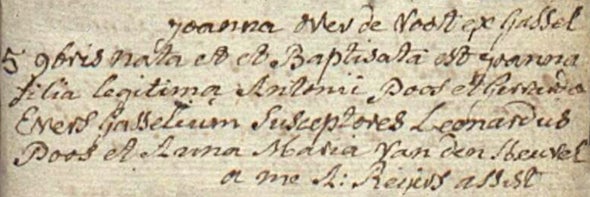 Joanna over de Voost ex Gassel
5 9bris nata et et Baptisata est Joanna
filia legitima Antonii Poos et Gerarda
Evers Gasselium Susceptores Leonardus
Poos et Anna Maria Van den Heuvel
a me A: Reijers assist